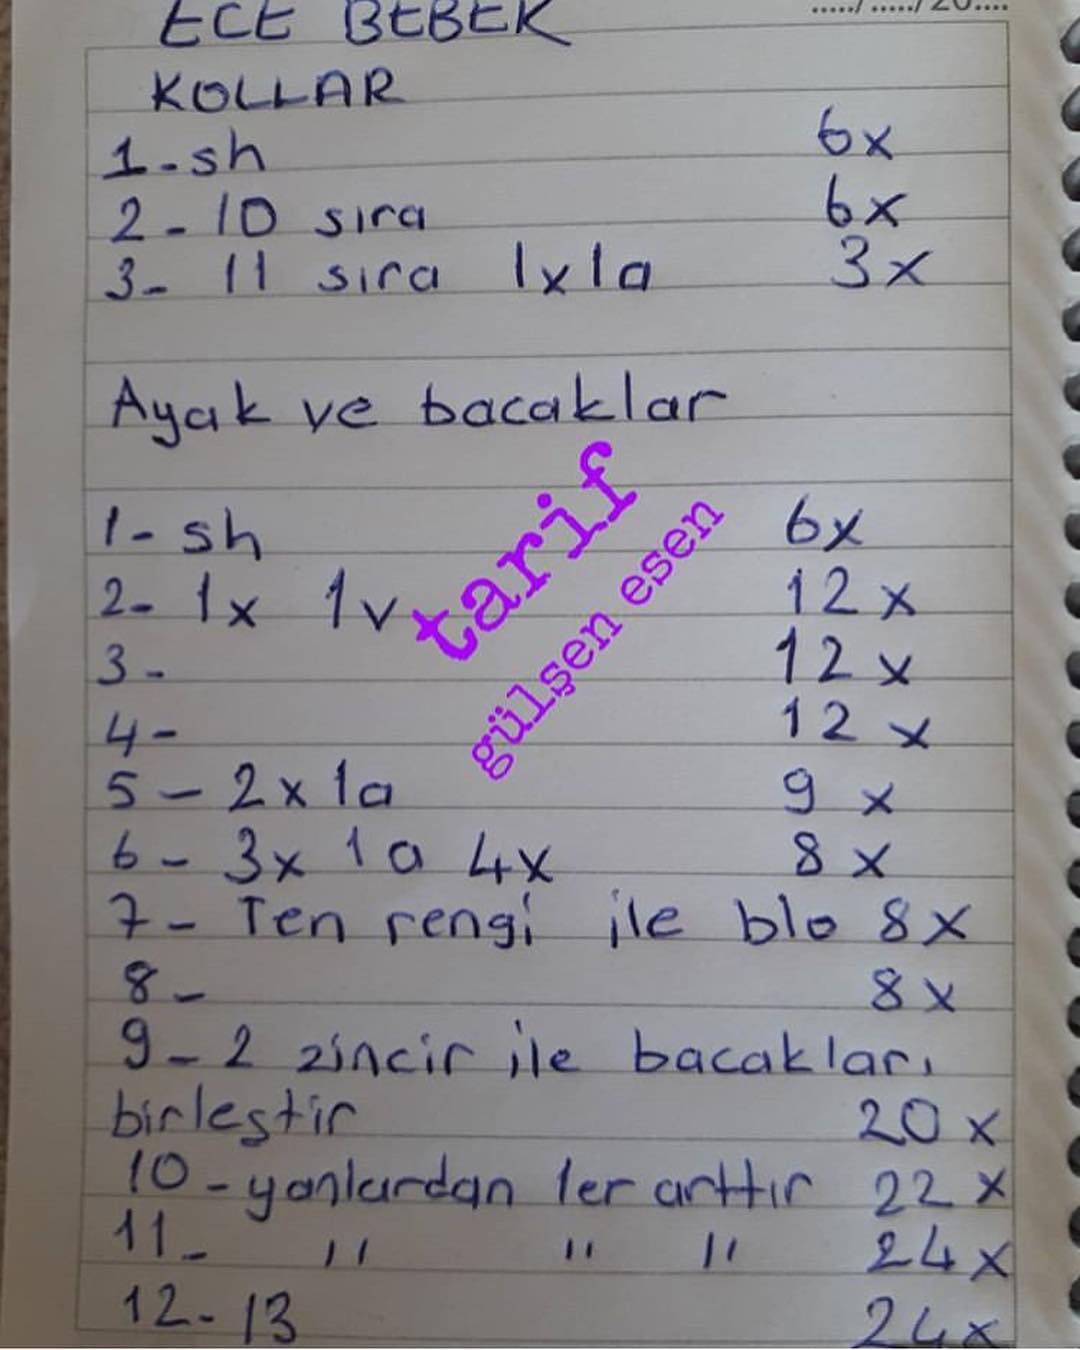 ...../...../20....
ECE BEBEK
KOLLAR
1-sh 6x
2- 10 sıra 6x
3- 11 sıra 1x1a 3x
Ayak ve bacaklar
1- sh 6x
2- 1x 1v 12x
3- 12x
4- 12x
5- 2x1a 9x
6- 3x 1a 4x 8x
7- Ten rengi ile blo 8x
8- 8x
9- 2 zincir ile bacakları
birleştir 20x
10-yanlardan 1er arttır 22x
11- " " " 24x
12-13 24x
tarif
gülşen esen